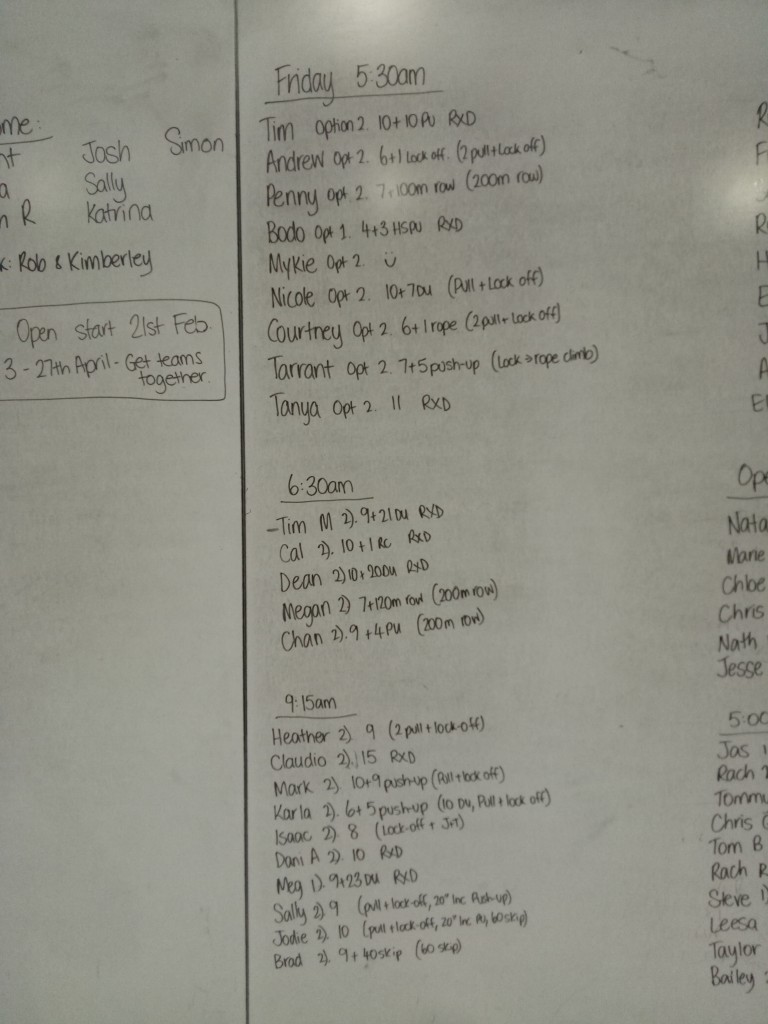 me:
nt Josh Simon
a Sally
n R Katrina
k: Rob & Kimberley
Open start 21st Feb
3 - 27th April - Get teams
together.
Friday 5:30am
Tim option 2. 10+10PU RXD
Andrew Opt 2. 6+1 Lock off. (2 pull + Lock off)
Penny Opt 2. 7+100m row (200m row)
Bodo Opt 1. 4+3 HSPU RXD
Mykie Opt 2. Ü
Nicole Opt 2. 10+7DU (Pull + Lock off)
Courtney Opt 2. 6+1 rope (2 pull + Lock off)
Tarrant Opt 2. 7+5 push-up (Lock → rope climb)
Tanya Opt 2. 11 RXD
6:30am
- Tim M 2). 9+21DU RXD
Cal 2). 10+1 RC RXD
Dean 2) 10+20DU RXD
Megan 2) 7+120m row (200m row)
Chan 2). 9+4PU (200m row)
9:15am
Heather 2). 9 (2 pull + lock-off)
Claudio 2). 15 RXD
Mark 2) 10+9 push-up (Pull + lock off)
Karla 2). 6+5 push-up (10 DU, Pull + lock off)
Isaac 2) 8 (Lock-off + J+T)
Dani A 2). 10 RXD
Meg 1). 9+23DU RXD
Sally 2) 9 (pull + lock-off, 20" Inc Push-up)
Jodie 2). 10 (pull + lock-off, 20" Inc PU, 60 skip)
Brad 2). 9+40 skip (60 skip)
R
F
R
H
E
J
A
El
Ope
Nata
Marie
Chloe
Chris
Nath
Jesse
5:00
Jas 1
Rach 2
Tommy
Chris C
Tom B
Rach R
Steve 1)
Leesa
Taylor
Bailey